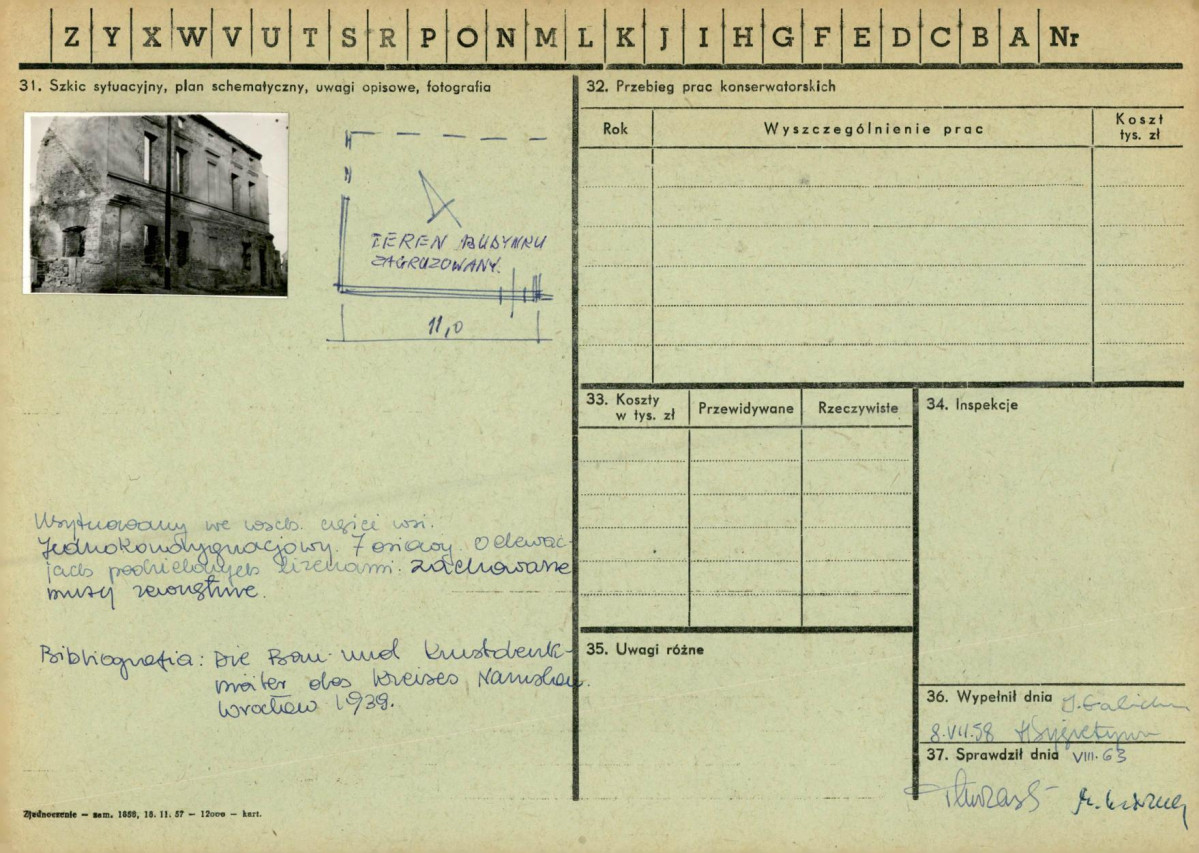 Z Y X W V U T S R P O N M L K J I H G F E D C B A Nr
31. Szkic sytuacyjny, plan schematyczny, uwagi opisowe, fotografia
N
TEREN BUDYNKU
ZAGRUZOWANY.
11,0
Usytuowany we wsch. części wsi.
Jednokondygnacjowy. 7 osiowy. O elewac-
jach podzielonych lizenami. Zachowane
mury zewnętrzne.
Bibliografia: Die Bau- und Kunstdenk-
mäler des Kreises Namslau.
Wrocław 1939.
Zjednoczenie — zam. 1650, 18. 11. 57 — 12000 — kart.
32. Przebieg prac konserwatorskich
Rok
Wyszczególnienie prac
Koszt
tys. zł
33. Koszty
w tys. zł
Przewidywane
Rzeczywiste
34. Inspekcje
35. Uwagi różne
36. Wypełnił dnia
8.VII.58
37. Sprawdził dnia VIII.63